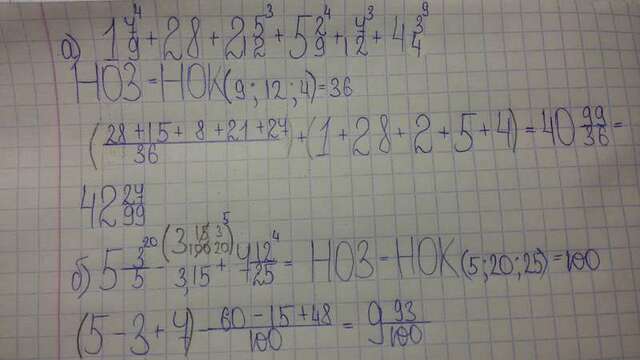 а) 1 7/9 ⁴ + 28 + 2 5/12 ³ + 5 2/9 ⁴ + 7/12 ³ + 4 3/4 ⁹
НОЗ = НОК(9; 12; 4) = 36
(28 + 15 + 8 + 21 + 27)/36 + (1 + 28 + 2 + 5 + 4) = 40 99/36 =
42 27/99
б) 5 3/5 ²⁰ - (3 15/100 3/20 ⁵) 3,15 + 7 12/25 ⁴ = НОЗ = НОК(5; 20; 25) = 100
(5 - 3 + 7) (60 - 15 + 48)/100 = 9 93/100